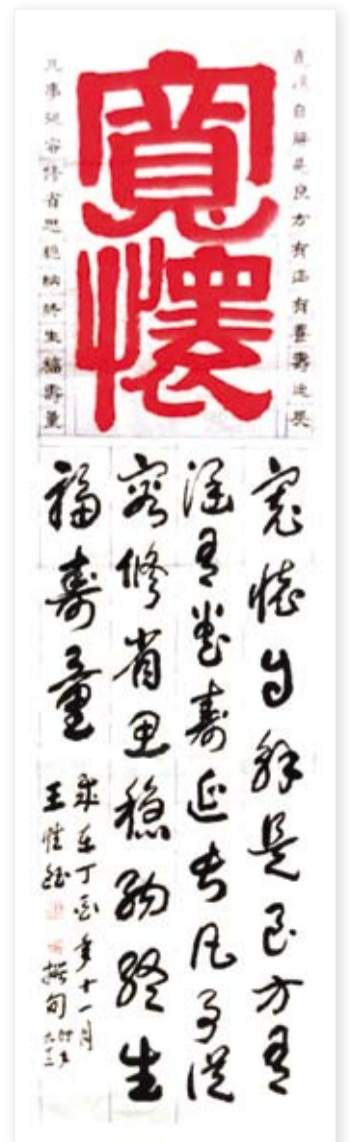 寬懷
寬懷自解是良方有涵有量壽延長
凡事從容修省思穩納終生福壽量
寬懷自解是良方有
涵有量壽延長凡事從
容修省思穩納終生
福壽量
歲在丁酉年十一月
王 撰句